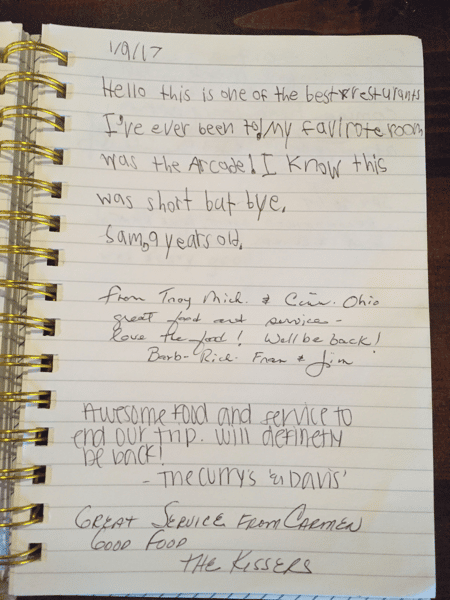 1/9/17
Hello this is one of the best resturants
I've ever been to! My favirote room
was the Arcade! I know this
was short but bye.
Sam, 9 years old.
From Troy Mich. & Cinn. Ohio
great food and services -
love the food! Well be back!
Barb - Rich - Fran & Jim
Awesome food and service to
end our trip. Will definetly
be back!
- The Curry's '& Davis'
Great Service From Carmen
Good Food
The Kissers